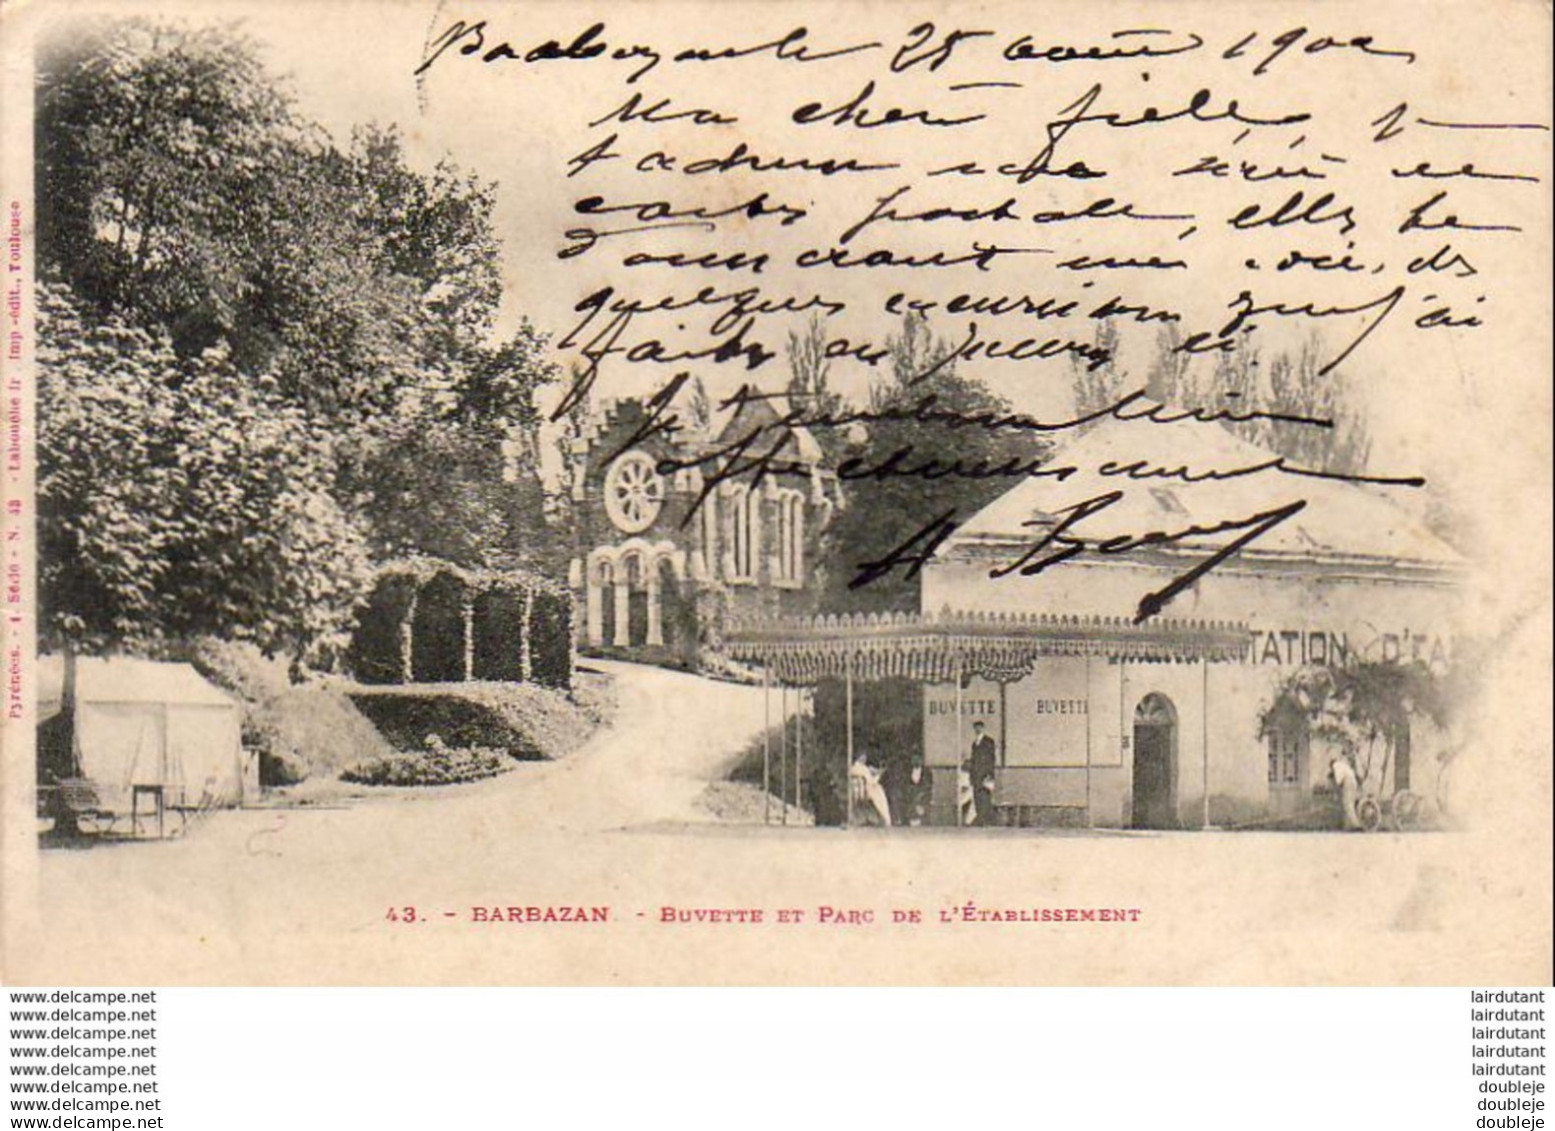 Barbazan le 25 août 1902
Ma chère fille, je
t'adresse une série de
cartes postales, elles te
donneront une idée des
quelques excursions que j'ai
faites au
Je t'embrasse bien
affectueusement
TATION D'EA
BUVETTE BUVETTE
43. - BARBAZAN. - BUVETTE ET PARC DE L'ÉTABLISSEMENT
Pyrénées. - 1. Série - N. 43 - Labouche fr. imp.-édit., Toulouse
www.delcampe.net
www.delcampe.net
www.delcampe.net
www.delcampe.net
www.delcampe.net
www.delcampe.net
www.delcampe.net
www.delcampe.net
lairdutant
lairdutant
lairdutant
lairdutant
lairdutant
doubleje
doubleje
doubleje